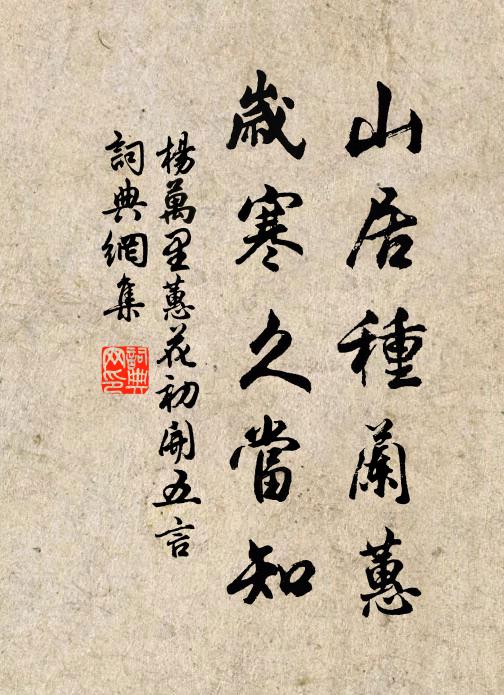 山居種蘭蕙
歲寒久當知
楊萬里蕙花初開五言
詞典網集
詞典網印